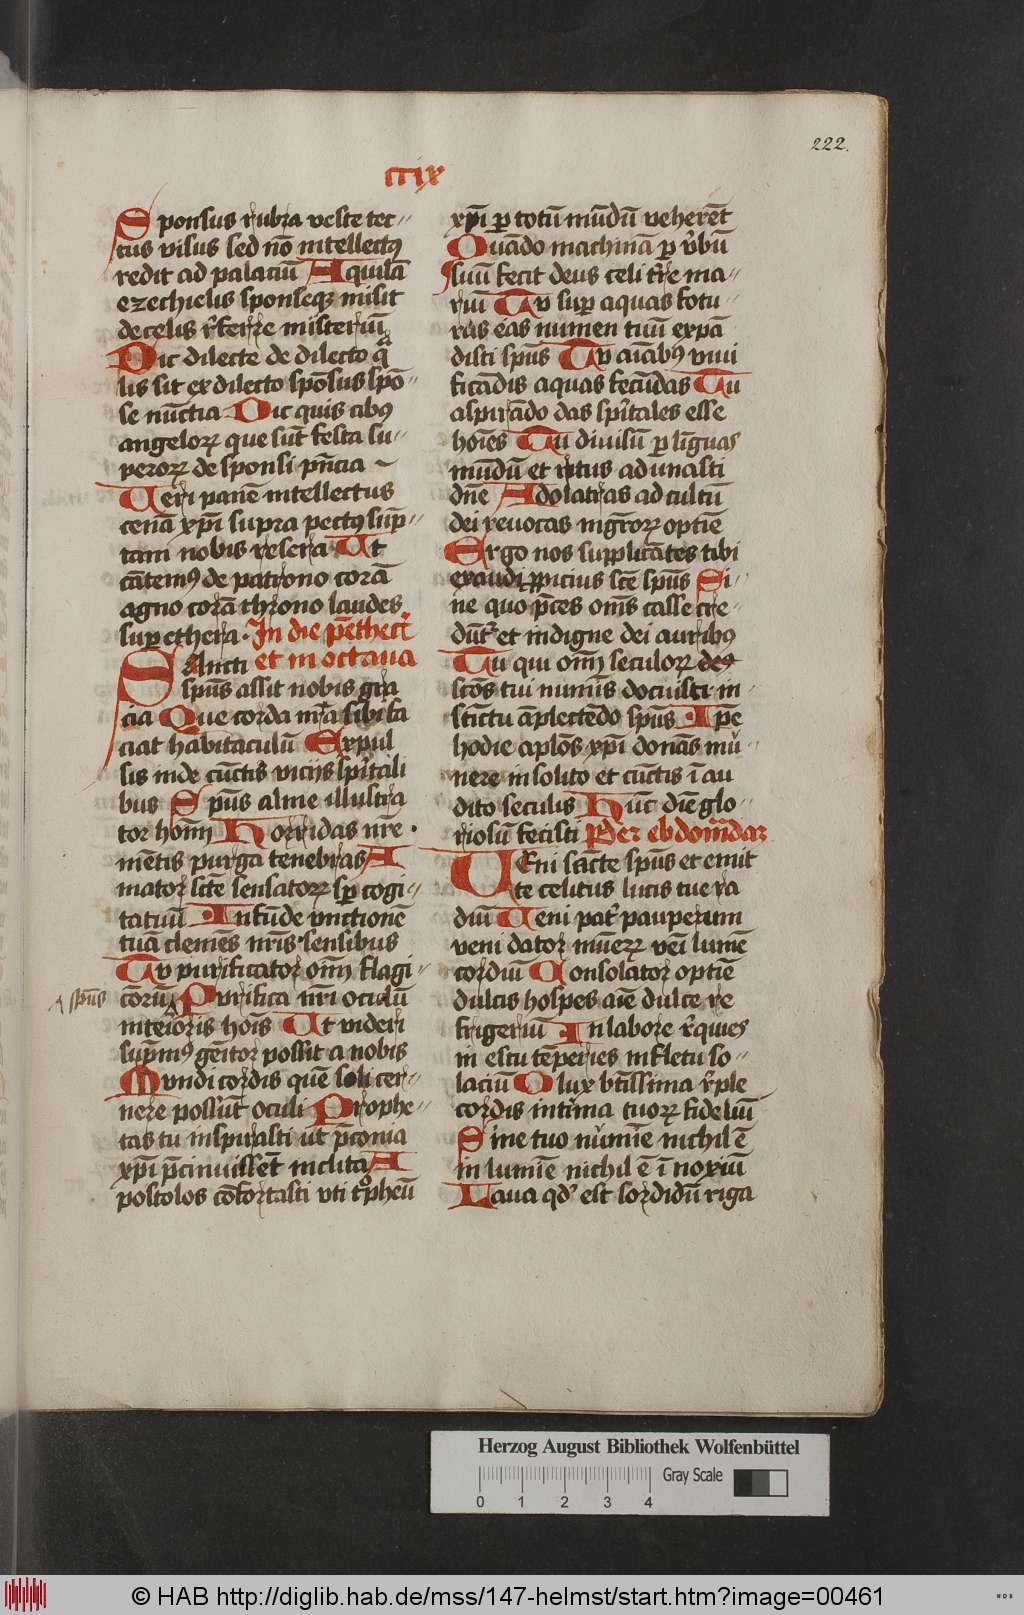 222.
ccix
Sponsus rubra veste tec-
tus visus sed nō intellectꝰ
redit ad palaciū Aquilā
ezechielis sponseqꝫ misit
de celis r̄ferre misteriū
Dic dilecte de dilecto q̄
lis sit ex dilecto spōsus spō-
se nūctia Dic quis cibꝰ
angeloꝝ que sūt festa su-
peroꝝ de sponsi pn̄cia
Veri panē intellectus
cenā xp̄i supra pectꝰ sūp-
tam nobis resera Ut
cātemꝰ de patrono corā
agno corā throno laudes
sup ethera . In die pēthecꝰ
Sancti et in octaua
spūs assit nobis gra
cia Que corda nr̄a sibi fa
ciat habitaculū Expul
sis inde cūctis vicijs spīrtali
bus Spūs alme illustra
tor hoīm Horridas nr̄e ·
mētis purga tenebras A
mator scē sensatoꝝ sꝑ cogi-
tatuū Infūde vnctionē
tuā clemēs nrīs sensibus
Tu purificator oīm flagi-
^ spūs
cōrū Purifica nr̄i oculū
interīoris hoīs Ut videri
supmꝰ gēitor possit a nobis
Mundi cordis quē soli cer-
nere possūt oculi Prophe-
tas tu inspirasti ut p̄conia
xp̄i p̄cinuissēt inclita A
postolos cōfortasti vti tropheū
xp̄i ꝑ totū mūdū veherēt
Quādo machinā ꝑ v̄bū
suū fecit deus celi tr̄e ma-
riū Tu suꝑ aquas fōtu-
rus eas numen tuū expā
disti spūs Tu aīabꝰ viui
ficādis aquas fecūdas Tu
aspirādo das spīrtales esse
hoīes Tu diuisū ꝑ līguas
mūdū et ritus adunasti
dn̄e Adolatras ad cultū
dei reuocas mgr̄oꝝ optīe
Ergo nos supplicātes tibi
exaudi ppicius scē spūs Si-
ne quo p̄ces om̄s casse cre-
dūt᷑ et indigne dei auribꝰ
Tu qui oīm seculoꝝ deꝰ
scōs tui numīs docuisti in-
stīctu āplectēdo spūs Ipe
hodie aplōs xp̄i donās mu-
nere insolito et cūctis ī au
dito seculis Hūc diē glo-
riosū fecisti Per ebdomadaꝫ
Ueni sācte spūs et emit
te celitus lucis tue ra
diū Ueni pat᷑ pauperum
veni dator mūeꝝ vēi lumē
cordiū Consolator optīe
dulcis hospes aīe dulce re
frigeriū In labore r̄quies
in estu tēperies in fletu so-
laciū O lux btīssima r̄ple
cordis intima tuoꝝ fideliū
Sine tuo nūmie nichil ē
in lumīe nichil ē ī noxiū
Laua qd᷑ est sordidū riga
Herzog August Bibliothek Wolfenbüttel
Gray Scale
0 1 2 3 4
© HAB http://diglib.hab.de/mss/147-helmst/start.htm?image=00461